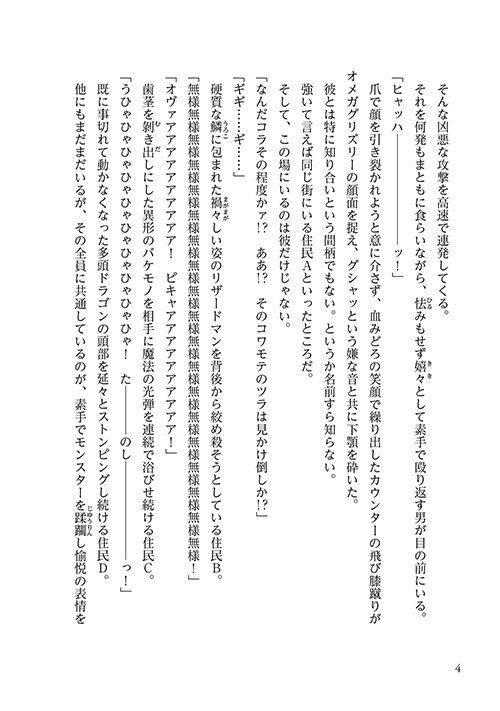 そんな凶悪な攻撃を高速で連発してくる。
それを何発もまともに食らいながら、怯みもせず嬉々として素手で殴り返す男が目の前にいる。
「ヒャッハ――――ッ！」
爪で顔を引き裂かれようと意に介さず、血みどろの笑顔で繰り出したカウンターの飛び膝蹴りが
オメガグリズリーの顔面を捉え、グシャッという嫌な音と共に下顎を砕いた。
彼とは特に知り合いという間柄でもない。というか名前すら知らない。
強いて言えば同じ街にいる住民Ａといったところだ。
そして、この場にいるのは彼だけじゃない。
「なんだコラその程度かァ!?　ああ!?　そのコワモテのツラは見かけ倒しか!?」
「ギギ……ギ……」
硬質な鱗に包まれた禍々しい姿のリザードマンを背後から絞め殺そうとしている住民Ｂ。
「無様無様無様無様無様無様無様無様無様無様無様無様無様無様無様無様無様！」
「オヴァアアアアアアアアアア！　ピキャアアアアアアアアア！」
歯茎を剝き出しにした異形のバケモノを相手に魔法の光弾を連続で浴びせ続ける住民Ｃ。
「うひゃひゃひゃひゃひゃひゃひゃひゃひゃひゃ！　た――のし――――――っ！」
既に事切れて動かなくなった多頭ドラゴンの頭部を延々とストンピングし続ける住民Ｄ。
他にもまだまだいるが、その全員に共通しているのが、素手でモンスターを蹂躙し愉悦の表情を
4